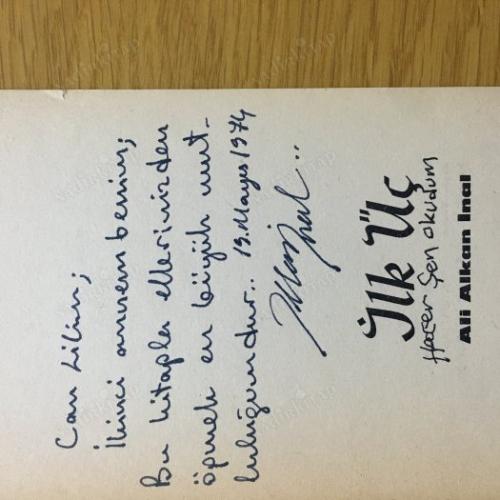 Can Lilim;
İkinci annem benim;
Bu kitapla ellerinizden
öpmek en büyük mut-
luluğumdur.. 13.Mayıs 1974
İlk Üç
Hacer Şen okudum
Ali Alkan İnal